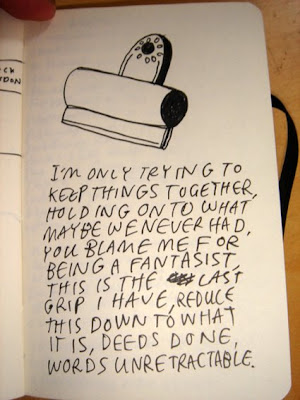 I'M ONLY TRYING TO
KEEP THINGS TOGETHER,
HOLDING ON TO WHAT
MAYBE WE NEVER HAD,
YOU BLAME ME FOR
BEING A FANTASIST,
THIS IS THE LAST
GRIP I HAVE, REDUCE
THIS DOWN TO WHAT
IT IS, DEEDS DONE,
WORDS UNRETRACTABLE.